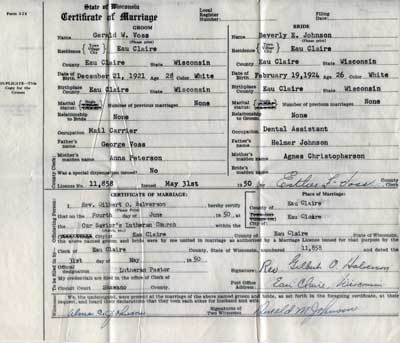 Form S24
State of Wisconsin
Certificate of Marriage
Local Register Number
Filing Date
DUPLICATE—This Copy for the Groom
GROOM
Name Gerald W. Voss
(Please print)
Residence Eau Claire
County Eau Claire State Wisconsin
Date of Birth December 21, 1921 Age 28 Color White
Birthplace County Eau Claire State Wisconsin
Marital status: Number of previous marriages None
Relationship to Bride None
Occupation Mail Carrier
Father's name George Voss
Mother's maiden name Anna Peterson
Was a special dispensation issued? No
License No. 11,858 Issued May 31st 1950
BRIDE
Name Beverly E. Johnson
(Please print)
Residence Eau Claire
County Eau Claire State Wisconsin
Date of Birth February 19, 1924 Age 26 Color White
Birthplace County Eau Claire State Wisconsin
Marital status: Number of previous marriages None
Relationship to Groom None
Occupation Dental Assistant
Father's name Helmer Johnson
Mother's maiden name Agnes Christopherson
County Clerk
CERTIFICATE OF MARRIAGE:
I, Rev. Gilbert O. Halverson, hereby certify
that on the Fourth day of June 1950 at
the Our Savior's Lutheran Church within the
City of Eau Claire
Place of Marriage:
County of Eau Claire
Eau Claire
County of Eau Claire State of Wisconsin,
the above named groom and bride were by me united in marriage as authorized by a Marriage License issued for that purpose by the
Clerk of Eau Claire County, State of Wisconsin, numbered 11,858 and dated the
31st day of May 1950.
Official designation Lutheran Pastor
My credentials are on file in the office of Clerk of
Circuit Court Shawano County.
Signature: Rev. Gilbert O. Halverson
Post Office Address Eau Claire, Wisconsin
We, the undersigned, were present at the marriage of the above named groom and bride, as set forth in the foregoing certificate, at their
request, and heard their declarations that they took each other for husband and wife.
Signatures of Two Witnesses
Donald M Johnson